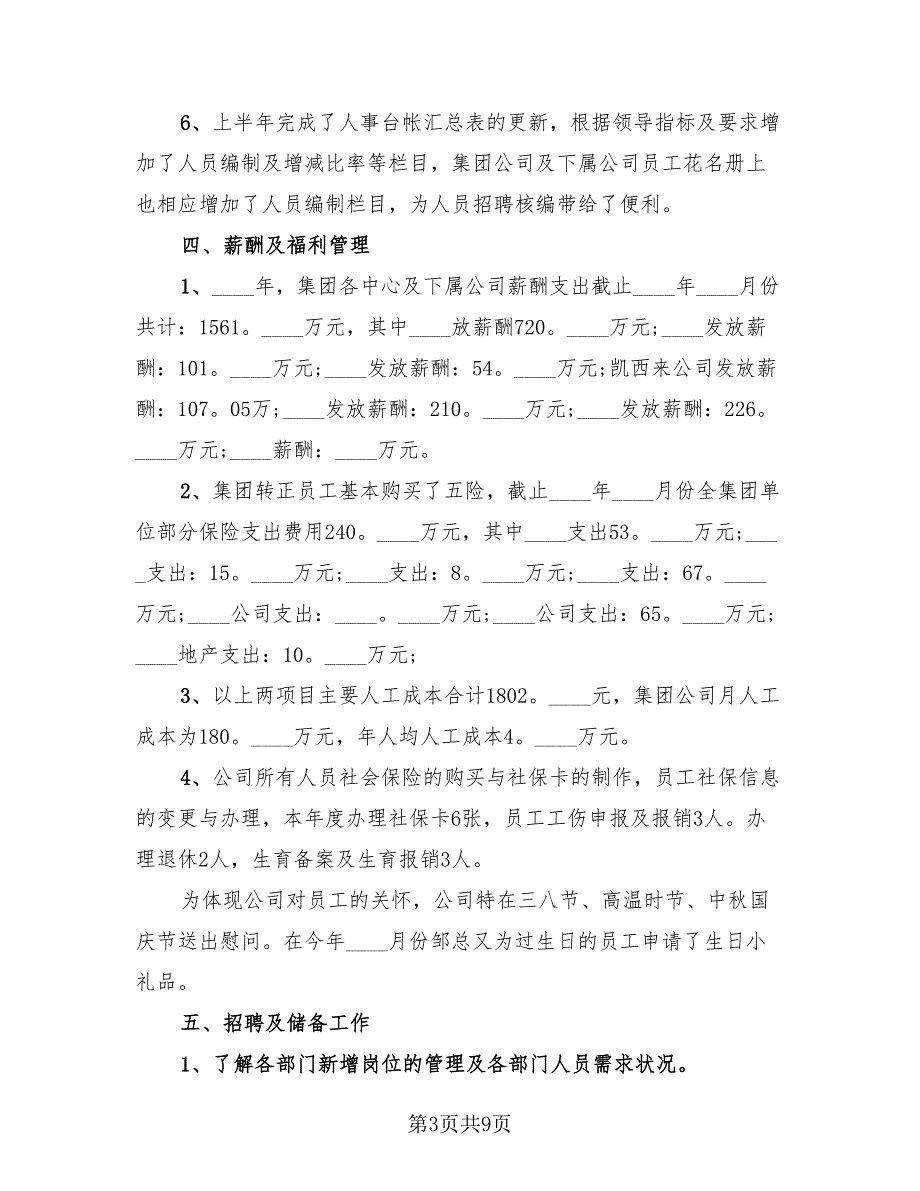 6、上半年完成了人事台帐汇总表的更新，根据领导指标及要求增
加了人员编制及增减比率等栏目，集团公司及下属公司员工花名册上
也相应增加了人员编制栏目，为人员招聘核编带给了便利。
四、薪酬及福利管理
1、____年，集团各中心及下属公司薪酬支出截止____年____月份
共计：1561。____万元，其中____放薪酬720。____万元;____发放薪
酬：101。____万元;____发放薪酬：54。____万元;凯西来公司发放薪
酬：107。05万;____发放薪酬：210。____万元;____发放薪酬：226。
____万元;____薪酬：____万元。
2、集团转正员工基本购买了五险，截止____年____月份全集团单
位部分保险支出费用240。____万元，其中____支出53。____万元;___
_支出：15。____万元;____支出：8。____万元;____支出：67。____
万元;____公司支出：____。____万元;____公司支出：65。____万元;
____地产支出：10。____万元;
3、以上两项目主要人工成本合计1802。____元，集团公司月人工
成本为180。____万元，年人均人工成本4。____万元。
4、公司所有人员社会保险的购买与社保卡的制作，员工社保信息
的变更与办理，本年度办理社保卡6张，员工工伤申报及报销3人。办
理退休2人，生育备案及生育报销3人。
为体现公司对员工的关怀，公司特在三八节、高温时节、中秋国
庆节送出慰问。在今年____月份邹总又为过生日的员工申请了生日小
礼品。
五、招聘及储备工作
1、了解各部门新增岗位的管理及各部门人员需求状况。
第3页共9页